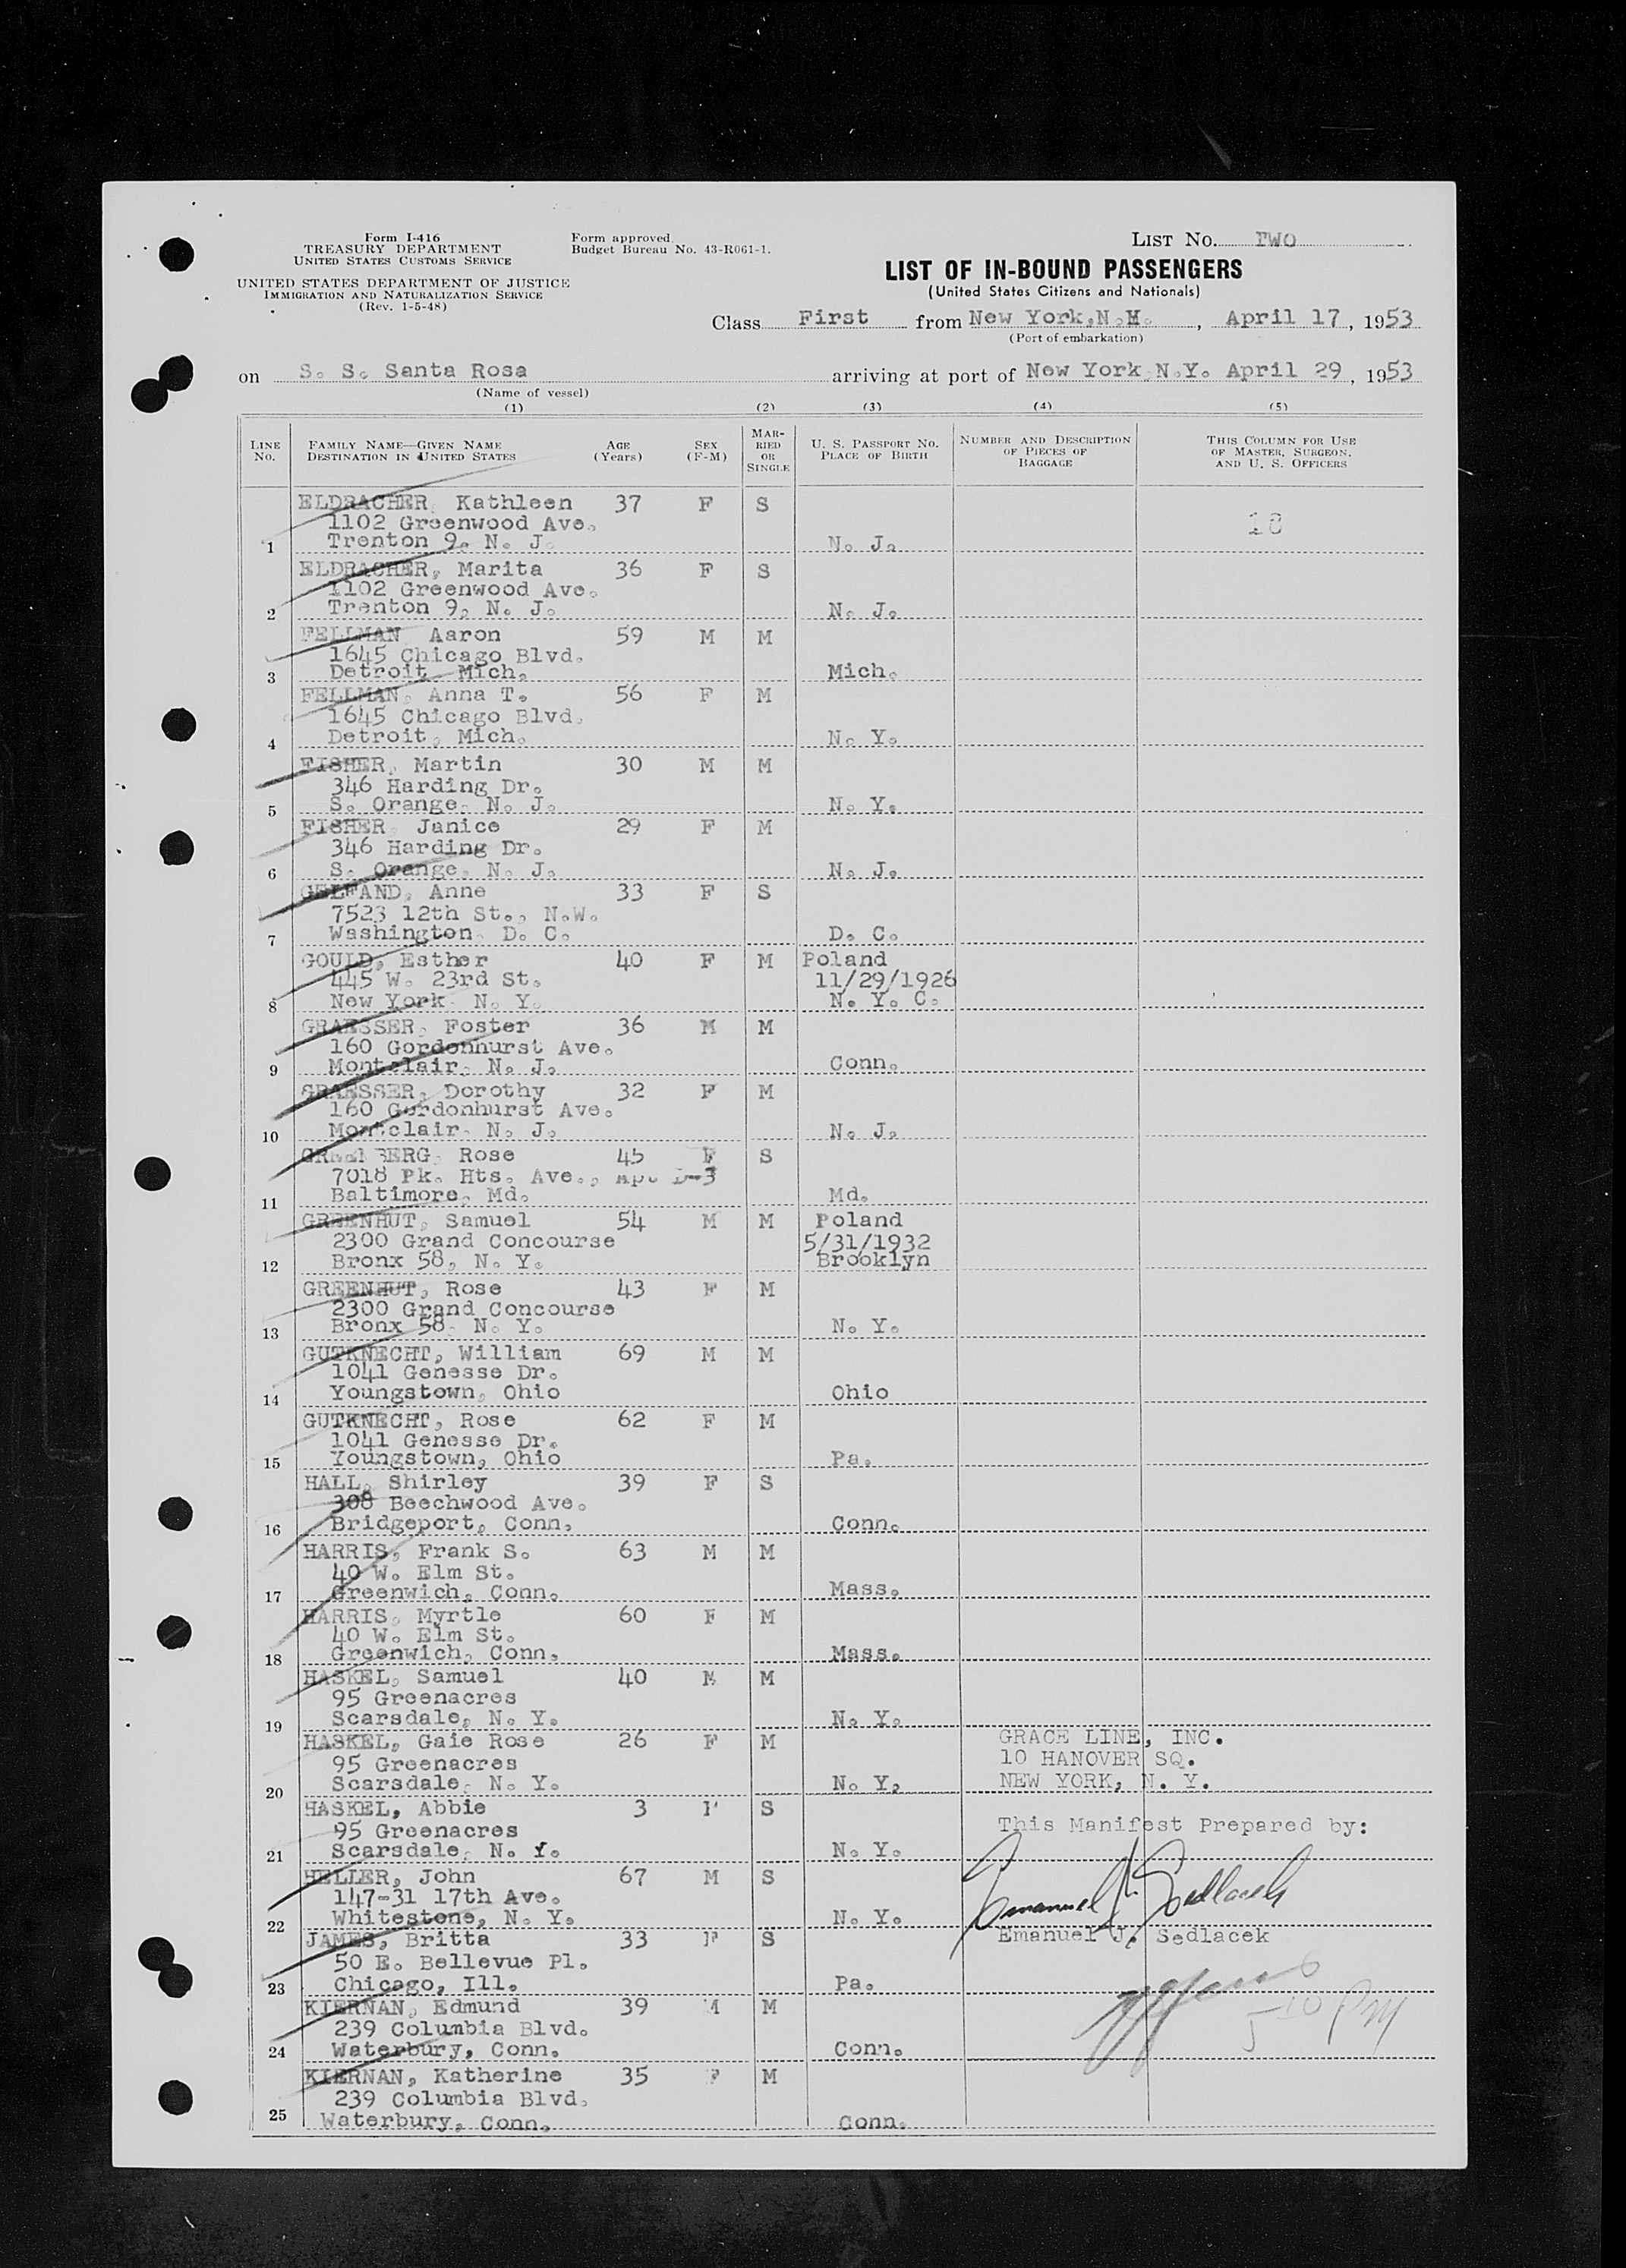 Form I-416
TREASURY DEPARTMENT
UNITED STATES CUSTOMS SERVICE
UNITED STATES DEPARTMENT OF JUSTICE
IMMIGRATION AND NATURALIZATION SERVICE
(Rev. 1-5-48)
Form approved.
Budget Bureau No. 43-R061-1.
LIST NO. TWO
LIST OF IN-BOUND PASSENGERS
(United States Citizens and Nationals)
Class First from New York, N.Y. , April 17, 1953
(Port of embarkation)
on S. S. Santa Rosa arriving at port of New York N.Y. April 29, 1953
(Name of vessel)
(1) (2) (3) (4) (5)
LINE NO.
FAMILY NAME—GIVEN NAME
DESTINATION IN UNITED STATES
AGE (Years)
SEX (F-M)
MARRIED OR SINGLE
U. S. PASSPORT NO.
PLACE OF BIRTH
NUMBER AND DESCRIPTION OF PIECES OF BAGGAGE
THIS COLUMN FOR USE OF MASTER, SURGEON, AND U. S. OFFICERS
ELDRACHER, Kathleen 37 F S
1102 Greenwood Ave. 18
1 Trenton 9, N. J. N. J.
ELDRACHER, Marita 36 F S
1102 Greenwood Ave.
2 Trenton 9, N. J. N. J.
FELLMAN Aaron 59 M M
1645 Chicago Blvd.
3 Detroit Mich. Mich.
FELLMAN, Anna T. 56 F M
1645 Chicago Blvd.
4 Detroit, Mich. N. Y.
FISHER, Martin 30 M M
346 Harding Dr.
5 S. Orange, N. J. N. Y.
FISHER Janice 29 F M
346 Harding Dr.
6 S. Orange, N. J. N. J.
GELFAND, Anne 33 F S
7523 12th St., N.W.
7 Washington, D. C. D. C.
GOULD, Esther 40 F M Poland
445 W. 23rd St. 11/29/1926
8 New York N. Y. N. Y. C.
GRAESSER, Foster 36 M M
160 Gordonhurst Ave.
9 Montclair, N. J. Conn.
GRAESSER, Dorothy 32 F M
160 Gordonhurst Ave.
10 Montclair, N. J. N. J.
GREENBERG, Rose 45 F S
7018 Pk. Hts. Ave., Apt D-3
11 Baltimore, Md. Md.
GREENHUT, Samuel 54 M M Poland
2300 Grand Concourse 5/31/1932
12 Bronx 58, N. Y. Brooklyn
GREENHUT, Rose 43 F M
2300 Grand Concourse
13 Bronx 58, N. Y. N. Y.
GUTKNECHT, William 69 M M
1041 Genesse Dr.
14 Youngstown, Ohio Ohio
GUTKNECHT, Rose 62 F M
1041 Genesse Dr.
15 Youngstown, Ohio Pa.
HALL, Shirley 39 F S
308 Beechwood Ave.
16 Bridgeport, Conn. Conn.
HARRIS, Frank S. 63 M M
40 W. Elm St.
17 Greenwich, Conn. Mass.
HARRIS, Myrtle 60 F M
40 W. Elm St.
18 Greenwich, Conn. Mass.
HASKEL, Samuel 40 M M
95 Greenacres
19 Scarsdale, N. Y. N. Y.
HASKEL, Gaie Rose 26 F M GRACE LINE, INC.
95 Greenacres 10 HANOVER SQ.
20 Scarsdale, N. Y. N. Y. NEW YORK, N. Y.
HASKEL, Abbie 3 F S
95 Greenacres This Manifest Prepared by:
21 Scarsdale, N. Y. N. Y.
HELLER, John 67 M S
147-31 17th Ave. Emanuel J. Sedlacek
22 Whitestone, N. Y. N. Y.
JAMES, Britta 33 F S Emanuel J. Sedlacek
50 E. Bellevue Pl.
23 Chicago, Ill. Pa.
KIERNAN, Edmund 39 M M
239 Columbia Blvd. 5 10 PM
24 Waterbury, Conn. Conn.
KIERNAN, Katherine 35 F M
239 Columbia Blvd.
25 Waterbury, Conn. Conn.